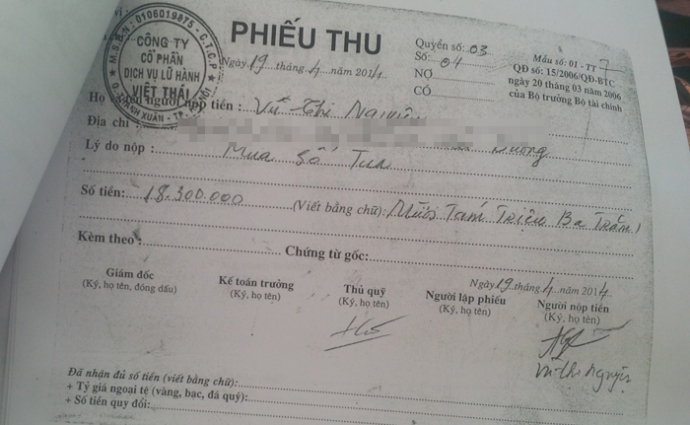 vị :
M.S.D.N : 0106019875 - C.T.C.P
CÔNG TY
CỔ PHẦN
DỊCH VỤ LỮ HÀNH
VIỆT THÁI
PHIẾU THU
Ngày 19 tháng 4 năm 2014
Quyển số: 03
Số: 04
NỢ
CÓ
Mẫu số: 01 - TT
QĐ số: 15/2006/QĐ-BTC
ngày 20 tháng 03 năm 2006
của Bộ trưởng Bộ tài chính
người nộp tiền : Vũ Thị Nguyên
Địa chỉ : Dương
Lý do nộp : Mua Số Tua
Số tiền: 18.300.000 (Viết bằng chữ): Mười Tám Triệu Ba Trăm
Kèm theo: Chứng từ gốc:
Ngày 19 tháng 4 năm 2014
Giám đốc Kế toán trưởng Thủ quỹ Người lập phiếu Người nộp tiền
(Ký, họ tên, đóng dấu) (Ký, họ tên) (Ký, họ tên) (Ký, họ tên) (Ký, họ tên)
Vũ Thị Nguyên
Đã nhận đủ số tiền (viết bằng chữ):
+ Tỷ giá ngoại tệ (vàng, bạc, đá quý):
+ Số tiền quy đổi: